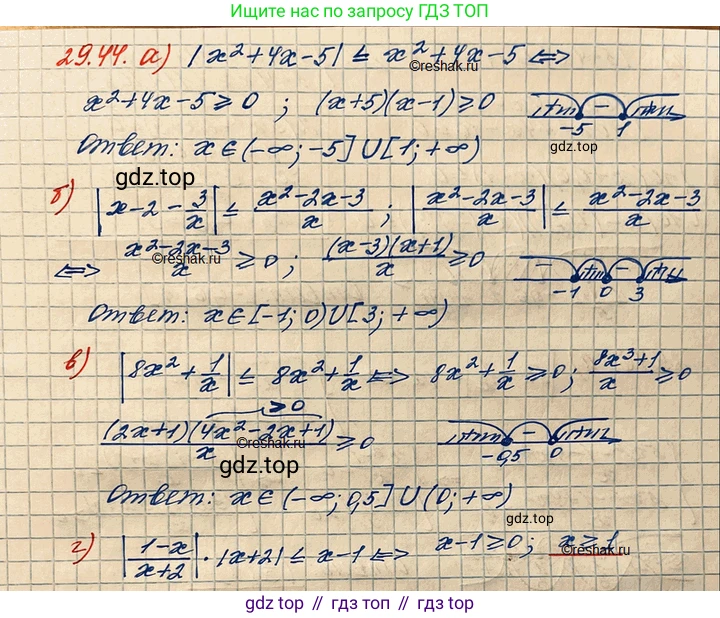 Ищите нас по запросу ГДЗ ТОП
29.44. а) |x²+4x-5| ≤ x²+4x-5 ⟺
©reshak.ru
x²+4x-5≥0 ; (x+5)(x-1)≥0 - -5 1
gdz.top
Ответ: x∈(-∞;-5]∪[1;+∞)
gdz.top
б) |x-2-3/x| ≤ (x²-2x-3)/x ; |(x²-2x-3)/x| ≤ (x²-2x-3)/x
⟺ (x²-2x-3)/x ≥0 ; ((x-3)(x+1))/x ≥0 - - -1 0 3
©reshak.ru
Ответ: x∈[-1;0)∪[3;+∞)
в) |8x²+1/x| ≤ 8x²+1/x ⟺ 8x²+1/x ≥0; (8x³+1)/x ≥0
≥0
((2x+1)(4x²-2x+1))/x ≥0 - -0,5 0
©reshak.ru
gdz.top
Ответ: x∈(-∞;0,5]∪(0;+∞)
gdz.top
г) |(1-x)/(x+2)|·|x+2| ≤ x-1 ⟺ x-1≥0; x≥1
©reshak.ru
gdz top // гдз топ // gdz top